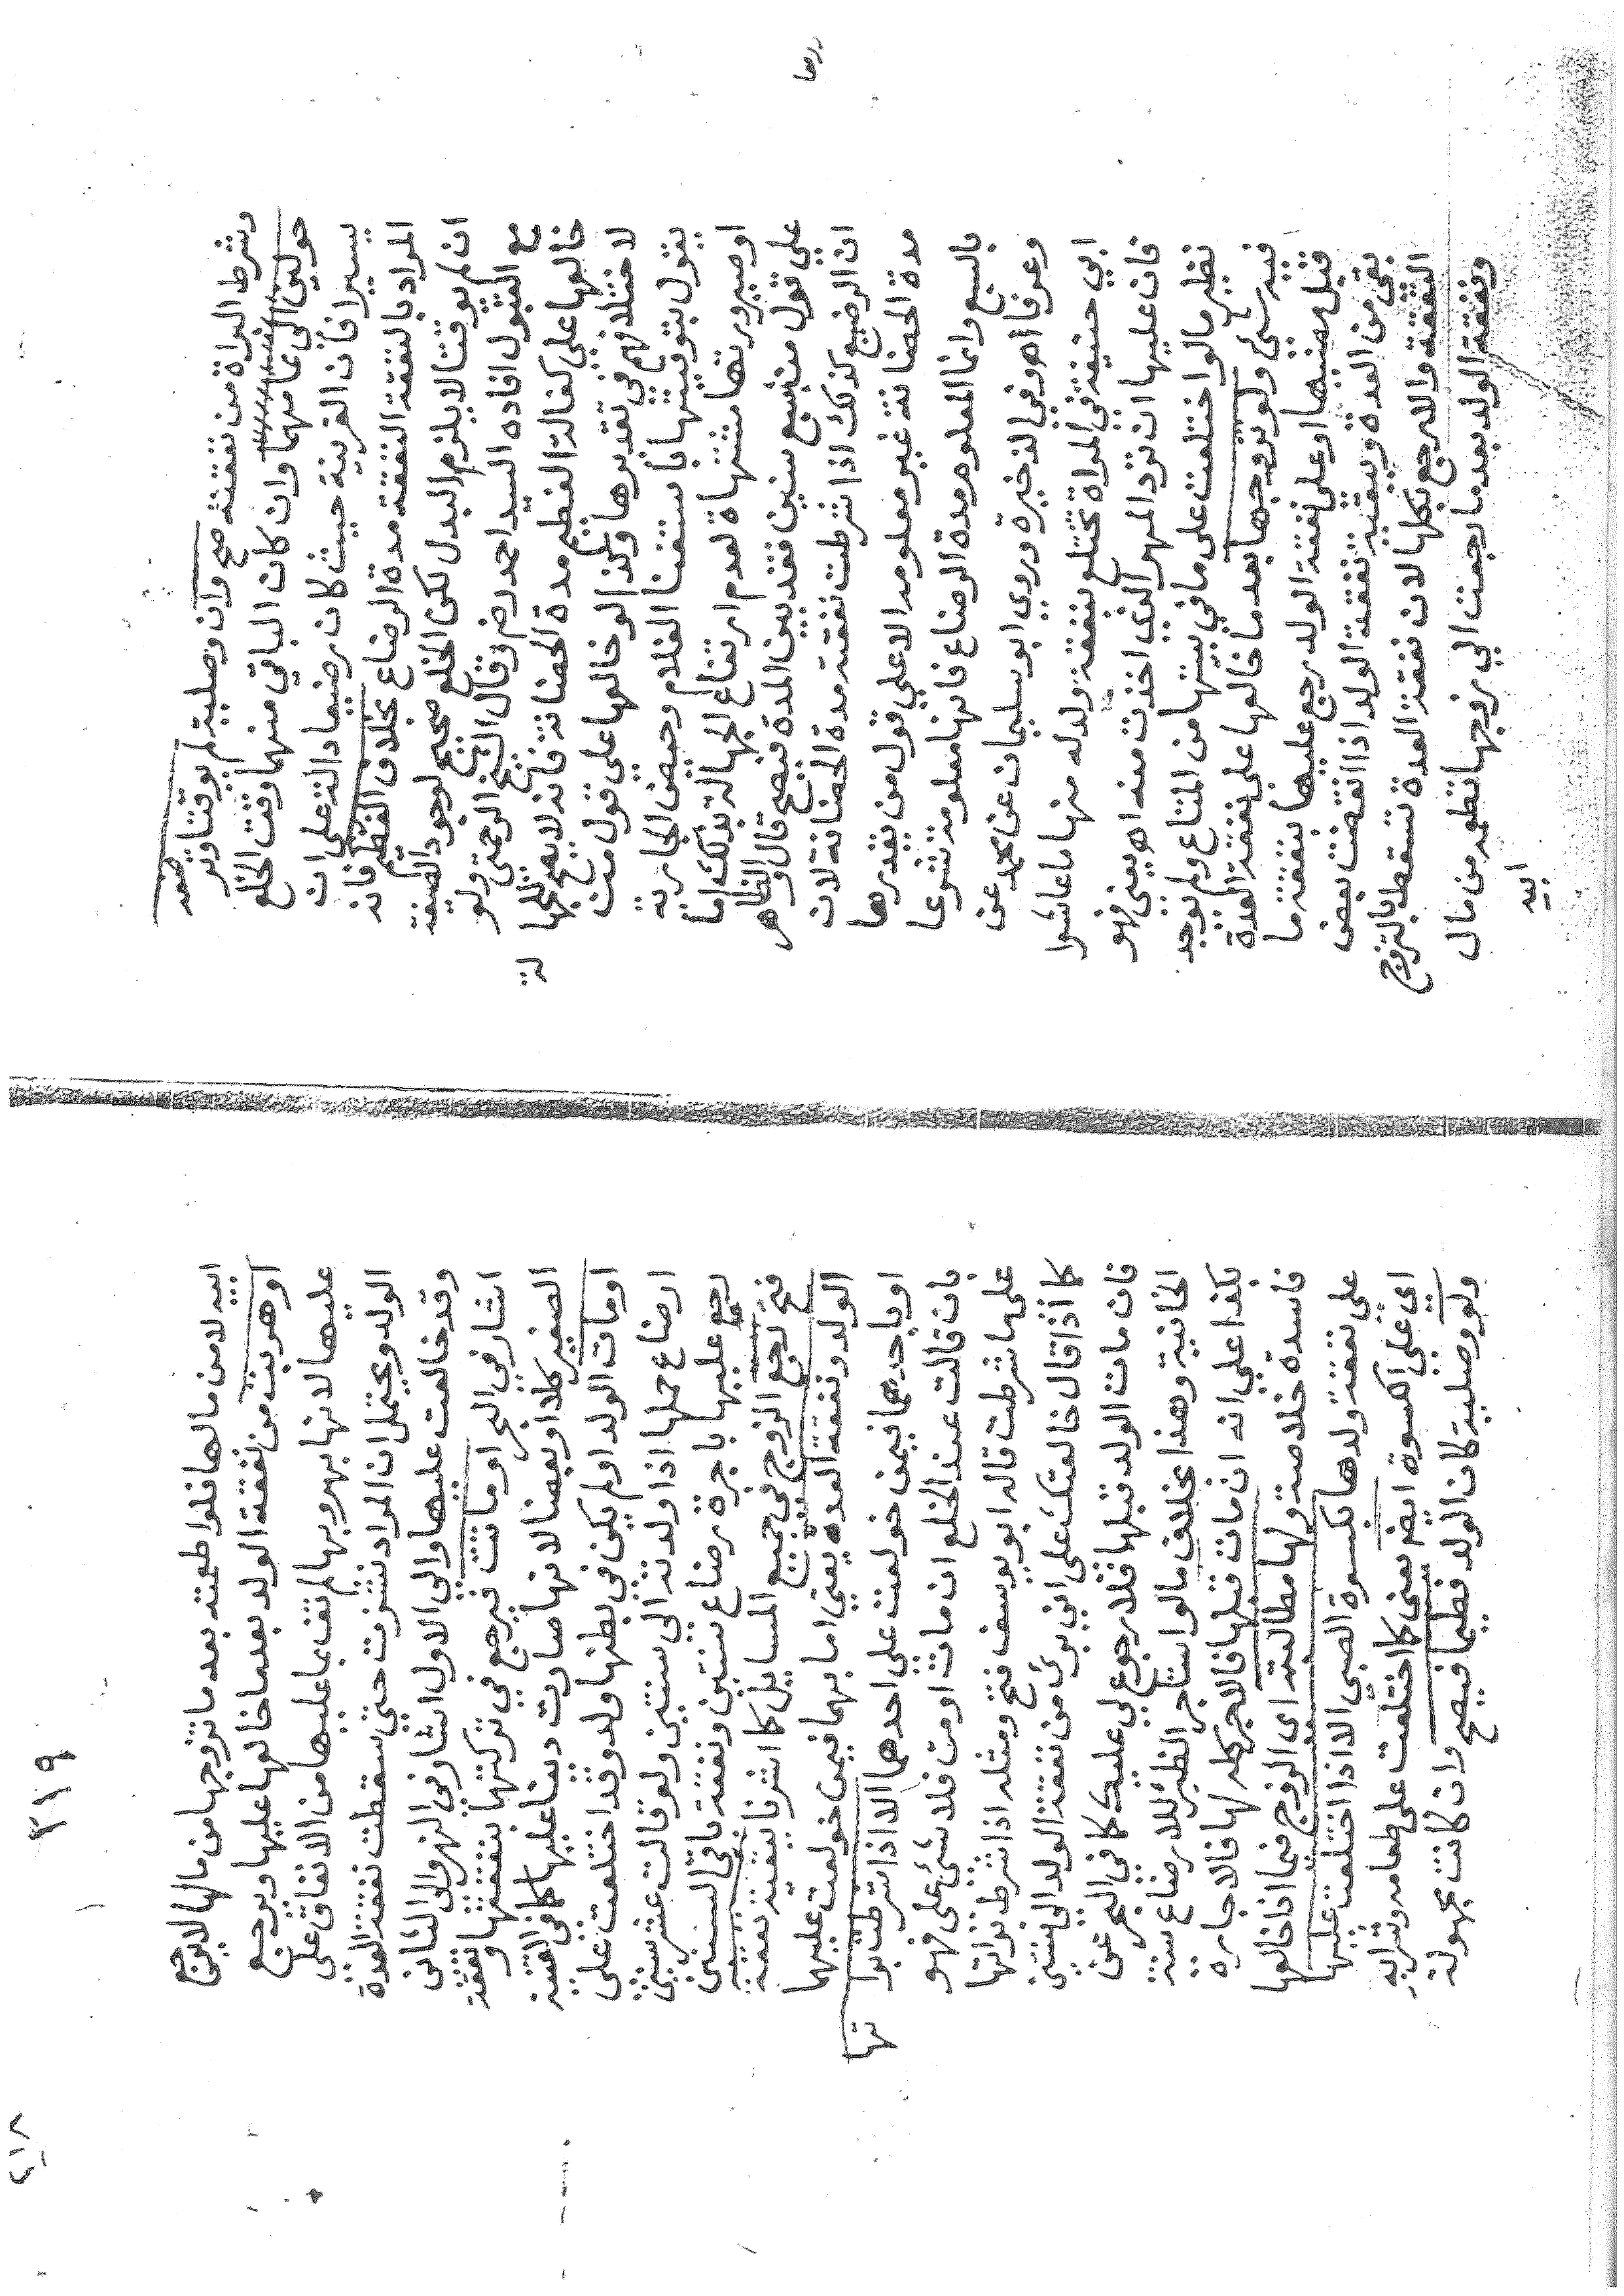 وشرط البراة من نفقته صح وان وصلية لم يوقتا وتر ضعه
حولين الى تمامهما وان كان الباقي منهما وقت الخلع
يسيرا فان القرينة حيث كان رضيعا دالة على ان
المراد بالنفقة النفقة مدة الرضاع بخلاف الفطيم فانه
ان لم يوقتا لا يلزم البدل لكن الخلع صحيح لوجود الصيغة
مع القبول افاده السيد احمد وقال الشيخ الرحمتي ولو
خالعها على كفالة الفطيم مدة الحضانة فانه لا يصح للجهالة
لاختلافهم في تقديرها وكذا لو خالعها على قول من
يقول بتوقيتها باستغنا الغلام وحيض الجارية
او صيرورتها مشتهاة لعدم ارتفاع الجهالة بذلك اما
على قول من سبع سنين فقد بين المدة فيصح قال والظاهر
ان الرضيع كذلك اذا شرطت نفقته مدة الحضانة لان
مدة الحضانة غير معلومة الا على قول من يقدرها
بالسبع وانما المعلوم مدة الرضاع فانها معلومة شرعا
وعرفا اه وفي الذخيرة وروي ابو سليمان عن محمد عن
ابي حنيفة في المراة تختلع بنفقة ولد له منها ما عاشوا
فان عليها ان ترد المهر الذي اخذت منه اه يعني فهو
نظير ما لو اختلعت على ما في بيتها من المتاع ولم يوجد
فيه شئ ولو تزوجها بعد ما خالعها على نفقة العدة
قبل مضيها او على نفقة الولد رجع عليها بنفقة ما
بقى من العدة وبقية نفقة الولد اذا انقضت بعض
النفقة والا رجع بكلها لان نفقة العدة تسقط بالتزوج
ونفقة الولد بعد ما رجعت الى زوجها تطعمه من مال
ابيه
٣١٩
ابيه لا من مالها فلو اطعمته بعد ما تزوجها من مالها لا ترجع
او هربت من نفقة الولد بعد ما خالعها عليها ويرجع
عليها لانها بهروبها لم تف بما عليها من الانفاق على
الولد ويحتمل ان المراد نشزت حتى سقطت نفقة العدة
وقد خالعت عليها والى الاول اشار في النهر والى الثانى
اشار في البحر او ماتت فيرجع في تركتها بنفقتها ونفقة
الصغير كلا او بعضا لانها صارت دينا عليها كما في القنية
او مات الولد او لم يكن في بطنها ولد وقد اختلعت على
ارضاع حملها اذا ولدته الى سنتين ولو قالت عشر سنين
رجع عليها باجرة رضاع سنتين ونفقة باقي السنين
فتح رجع الزوج في جميع المسايل كما اشرنا ببقية نفقة
الولد ونفقة العده يعني اما بهما فيمن خولعت عليهما
او باحدهما فيمن خولعت على احدهما الا اذا شرطت براتها
بان قالت عند الخلع ان مات او مت فلا شئ على فهو
على ما شرطت قاله ابو يوسف فتح ومثله اذا شرط براتها
كما اذا قال خالعتك على اني برئ من نفقة الولد الى سنتين
فان مات الولد قبلها فلا رجوع لي عليك كما في البحر عن
الخانية وهذا بخلاف ما لو استاجر الظئر للارضاع سنة
بكذا على انه ان مات قبلها فالاجر كله لها فالاجارة
فاسدة خلاصة ولها مطالبته اى الزوج فيما اذا خالعها
على نفقة ولدها بكسوة الصبى الا اذا اختلعت عليها
اى على الكسوة ايضم يعنى كما اختلعت على طعامه وشرابه
ولو وصلية كان الولد فطيما فيصح وان كانت مجهولة
٤١٨